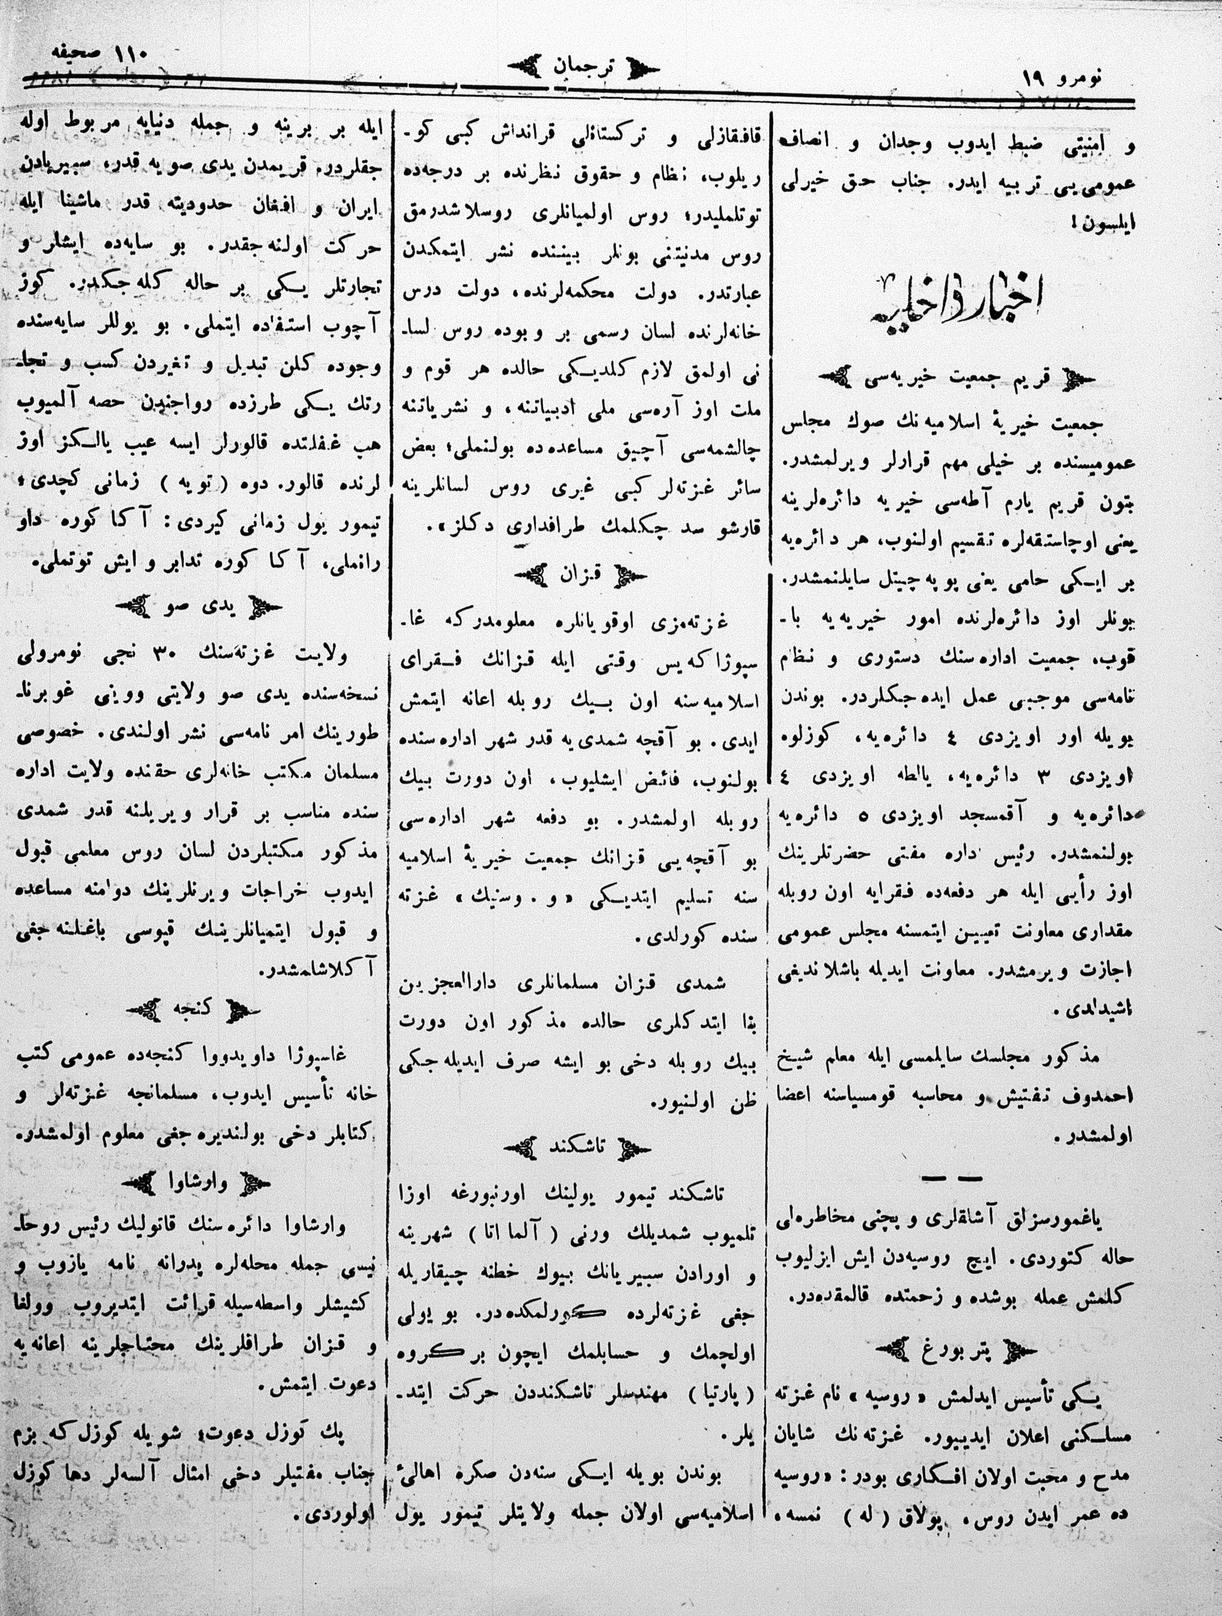 نومرو ١٩
ترجمان
١١٠ صحیفه
و امنیتی ضبط ایدوب وجدان و انصاف
عمومی‌یی تربیه ایدر. جناب حق خیرلی
ایلسون!
اخبار داخلیه
قریم جمعیت خیریه‌سی
جمعیت خیریۀ اسلامیه‌نك صوك مجلس
عمومیسنده بر خیلی مهم قرارلر ویرلمشدر.
بتون قریم یارم آطه‌سی خیریه دائره‌لرینه
یعنی اوچاستقه‌لره تقسیم اولنوب، هر دائره‌یه
بر ایکی حامی یعنی پوپه‌چیتل سایلنمشدر.
بونلر اوز دائره‌لرنده امور خیریه‌یه با-
قوب، جمعیت اداره‌سنك دستوری و نظام
نامه‌سی موجبی عمل ایده‌جکلردر. بوندن
بویله اور اویزدی ٤ دائره‌یه، کوزلوه
اویزدی ٣ دائره‌یه، یالطه اویزدی ٤
دائره‌یه و آقمسجد اویزدی ٥ دائره‌یه
بولنمشدر. رئیس داره مفتی حضرتلرینك
اوز رأیی ایله هر دفعه‌ده فقرایه اون روبله
مقداری معاونت تعیین ایتمسنه مجلس عمومی
اجازت ویرمشدر. معاونت ایدیله باشلاندیغی
اشیدلدی.
مذکور مجلسك سایلمسی ایله معلم شیخ
احمدوف تفتیش و محاسبه قومسیاسنه اعضا
اولمشدر.
یاغمورسزلق آشلقلری و پچنی مخاطره‌لی
حاله کتوردی. ایچ روسیه‌دن ایش ایزلیوب
کلمش عمله بوشده و زحمتده قالمقده‌در.
پتربورغ
یکی تأسیس ایدلمش «روسیه» نام غزته
مسلکنی اعلان ایدییور. غزته‌نك شایان
مدح و محبت اولان افکاری بودر: «روسیه
ده عمر ایدن روس، پولاق (له) نمسه،
قافقازلی و ترکستانلی قرانداش کبی کو-
ریلوب، نظام و حقوق نظرنده بر درجه‌ده
توتلملیدر؛ روس اولمیانلری روسلاشدرمق
روس مدنیتنی بونلر بیننده نشر ایتمکدن
عبارتدر. دولت محکمه‌لرنده، دولت درس
خانه‌لرنده لسان رسمی بر وبوده روس لسا-
نی اولمق لازم کلدیکی حالده هر قوم و
ملت اوز آره‌سی ملی ادبیاتنه، و نشریاتنه
چالشمه‌سی آچیق مساعده‌ده بولنملی؛ بعض
سائر غزته‌لر کبی غیری روس لسانلرینه
قارشو سد چکلمك طرافداری دکلز».
قزان
غزته‌مزی اوقویانلره معلومدرکه غا-
سپوژا که‌یس وقتی ایله قزانك فقرای
اسلامیه‌سنه اون بیك روبله اعانه ایتمش
ایدی. بو آقچه شمدی‌یه قدر شهر اداره‌سنده
بولنوب، فائض ایشلیوب، اون دورت بیك
روبله اولمشدر. بو دفعه شهر اداره‌سی
بو آقچه‌یی قزانك جمعیت خیریۀ اسلامیه
سنه تسلیم ایتدیکی «و. وستنیك» غزته
سنده کورلدی.
شمدی قزان مسلمانلری دارالعجزین
بنا ایتدکلری حالده مذکور اون دورت
بیك روبله دخی بو ایشه صرف ایدیله‌جکی
ظن اولنیور.
تاشکند
تاشکند تیمور یولینك اورنبورغه اوزا
تلمیوب شمدیلك ورنی (آلما اتا) شهرینه
و اورادن سبیریانك بیوك خطنه چیقاریله
جغی غزته‌لرده کورلمکده‌در. بو یولی
اولچمك و حسابلمك ایچون بر کروه
(پارتیا) مهندسلر تاشکنددن حرکت ایتد-
یلر.
بوندن بویله ایکی سنه‌دن صکره اهالیٔ
اسلامیه‌سی اولان جمله ولایتلر تیمور یول
ایله بر برینه و جمله دنیایه مربوط اوله
جقلردر. قریمدن یدی صویه قدر، سبیریادن
ایران و افغان حدودینه قدر ماشینا ایله
حرکت اولنه‌جقدر. بو سایه‌ده ایشلر و
تجارتلر یکی بر حاله کله‌جکدر. کوز
آچوب استفاده ایتملی. بو یوللر سایه‌سنده
وجوده کلن تبدیل و تغیردن کسب و تجا-
رتك یکی طرزده رواجندن حصه آلمیوب
هب غفلتده قالورلر ایسه عیب یالکز اوز
لرنده قالور. دوه (تویه) زمانی کچدی؛
تیمور یول زمانی کیردی: آکا کوره داو
رانملی، آکا کوره تدابر و ایش توتملی.
یدی صو
ولایت غزته‌سنك ٣٠ نجی نومرولی
نسخه‌سنده یدی صو ولایتی ووینی غوبرنا-
طورینك امر نامه‌سی نشر اولندی. خصوصی
مسلمان مکتب خانه‌لری حقنده ولایت اداره
سنده مناسب بر قرار ویریلنه قدر شمدی
مذکور مکتبلردن لسان روس معلمی قبول
ایدوب خراجات ویرنلرینك دوامنه مساعده
و قبول ایتمیانلرینك قپوسی باغلنه‌جغی
آکلاشلمشدر.
کنجه
غاسپوژا داویدووا کنجه‌ده عمومی کتب
خانه تأسیس ایدوب، مسلمانجه غزته‌لر و
کتابلر دخی بولندیره‌جغی معلوم اولمشدر.
وارشاوا
وارشاوا دائره‌سنك قاتولیك رئیس روحا-
نیسی جمله محله‌لره پدرانه نامه یازوب و
کشیشلر واسطه‌سیله قرائت ایتدیروب وولغا
و قزان طرافلرینك محتاجلرینه اعانه‌یه
دعوت ایتمش.
پك کوزل دعوت؛ شویله کوزل که بزم
جناب مفتیلر دخی امثال آلسه‌لر دها کوزل
اولوردی.